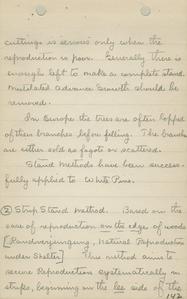 cuttings is serious only when the
reproduction is poor. Generally there is
enough left to make a complete stand.
Mutilated advance growth should be
removed.
In Europe the trees are often lopped
of their branches before felling. The branches
are either sold as fagots or scattered.
Stand Methods have been success-
fully applied to White Pine.
② Strip Stand Method. Based on the
ease of reproduction on the edge of woods
[Randverjüngung, Natural Reproduction
under Shelter] This method aims to
secure Reproduction systematically in
strips, beginning on the lee side of the
142